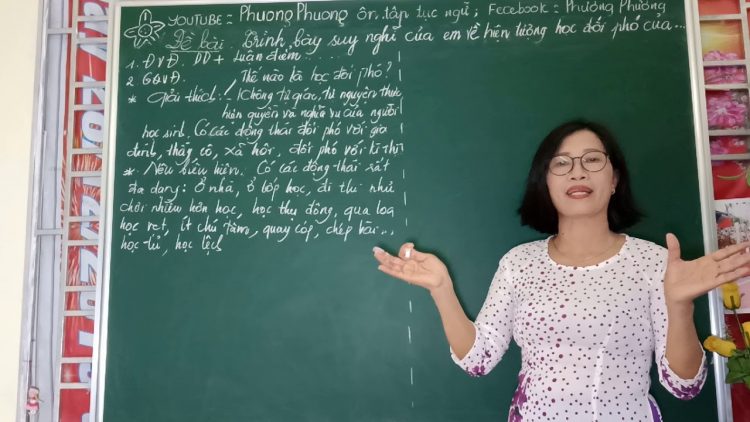 YOUTUBE = Phuong Phuong ôn tập tục ngữ; Fecebook = Phương Phương
Đề bài. Trình bày suy nghĩ của em về hiện tượng học đối phó của...
1. ĐVĐ. DD + Luận điểm....
2. GQVĐ. Thế nào là học đối phó?
* Giải thích: - Không tự giác, tự nguyện thực
hiện quyền và nghĩa vụ của người
học sinh. Có các động thái đối phó với gia
đình, thầy cô, xã hội, đối phó với kì thi
* Nêu biểu hiện. Có các động thái rất
đa dạng: Ở nhà, ở lớp học, đi thi như
chơi nhiều hơn học, học thụ động, qua loa
học vẹt, ít chú tâm, quay cóp, chép bài..,
học tủ, học lệch